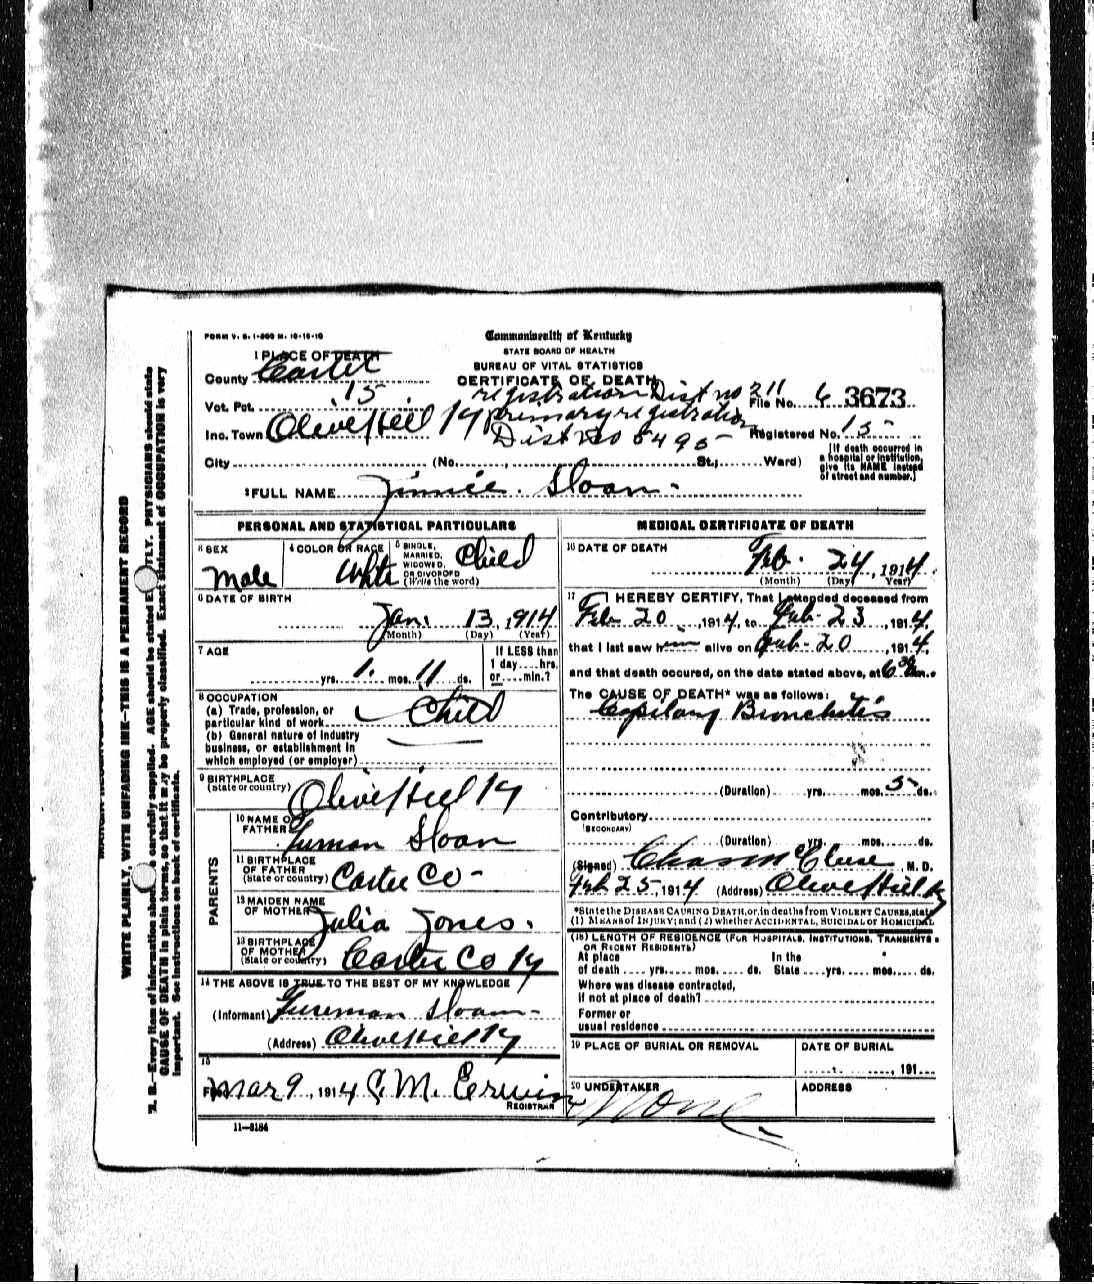 FORM V. S. 1-500 M. 10-10-10
Commonwealth of Kentucky
STATE BOARD OF HEALTH
BUREAU OF VITAL STATISTICS
CERTIFICATE OF DEATH
1 PLACE OF DEATH
County Carter
registration Dist no 211
File No. 6 3673
Vot. Pct. 15
primary registration
Inc. Town Olive Hill Ky
Dist No 5495
Registered No. 15
City (No. , St.; Ward)
[If death occurred in a hospital or institution, give its NAME instead of street and number.]
2 FULL NAME Jinnie Sloan
PERSONAL AND STATISTICAL PARTICULARS
3 SEX Male
4 COLOR OR RACE White
5 SINGLE, MARRIED, WIDOWED, OR DIVORCED (Write the word) Child
6 DATE OF BIRTH
Jan. 13, 1914
(Month) (Day) (Year)
7 AGE
yrs. 1 mos. 11 ds.
If LESS than 1 day....hrs. or....min.?
8 OCCUPATION
(a) Trade, profession, or particular kind of work Child
(b) General nature of industry business, or establishment in which employed (or employer)
9 BIRTHPLACE (State or country) Olive Hill Ky
PARENTS
10 NAME OF FATHER Furman Sloan
11 BIRTHPLACE OF FATHER (State or country) Carter Co -
12 MAIDEN NAME OF MOTHER Julia Jones.
13 BIRTHPLACE OF MOTHER (State or country) Carter Co Ky
14 THE ABOVE IS TRUE TO THE BEST OF MY KNOWLEDGE
(Informant) Fureman Sloan-
(Address) Olive Hill Ky
15
Filed Mar 9, 1914 C. M. Erwin
REGISTRAR
11-3184
MEDICAL CERTIFICATE OF DEATH
16 DATE OF DEATH
Feb. 24, 1914
(Month) (Day) (Year)
17 I HEREBY CERTIFY, That I attended deceased from
Feb 20, 1914, to Feb- 23, 1914,
that I last saw him alive on Feb- 20, 1914,
and that death occured, on the date stated above, at 6 30 m.
The CAUSE OF DEATH* was as follows:
Capilary Bronchitis
(Duration) yrs. mos. 5 ds.
Contributory
(SECONDARY)
(Duration) yrs. mos. ds.
(Signed) Chas M Cleese M. D.
Feb 25, 1914 (Address) Olive Hill Ky
*State the DISEASE CAUSING DEATH, or, in deaths from VIOLENT CAUSES, state
(1) MEANS of INJURY; and (2) whether ACCIDENTAL, SUICIDAL or HOMICIDAL.
(18) LENGTH OF RESIDENCE (FOR HOSPITALS, INSTITUTIONS, TRANSIENTS OR RECENT RESIDENTS)
At place of death .... yrs. .... mos. .... ds. In the State .... yrs. .... mos. .... ds.
Where was disease contracted,
If not at place of death?
Former or
usual residence
19 PLACE OF BURIAL OR REMOVAL
DATE OF BURIAL
, 191
20 UNDERTAKER None
ADDRESS
WRITE PLAINLY, WITH UNFADING INK—THIS IS A PERMANENT RECORD
N. B.—Every item of information should be carefully supplied. AGE should be stated EXACTLY. PHYSICIANS should state
CAUSE OF DEATH in plain terms, so that it may be properly classified. Exact statement of OCCUPATION is very
important. See instructions on back of certificate.